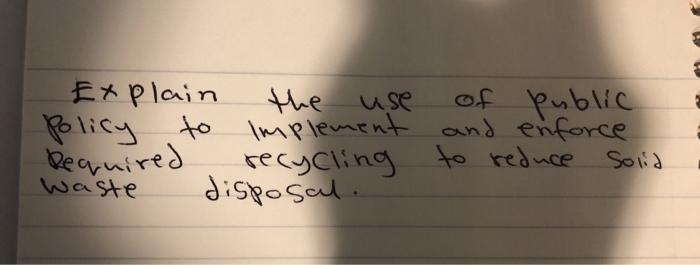 Explain the use of public
Policy to Implement and enforce
Required recycling to reduce Solid
waste disposal.